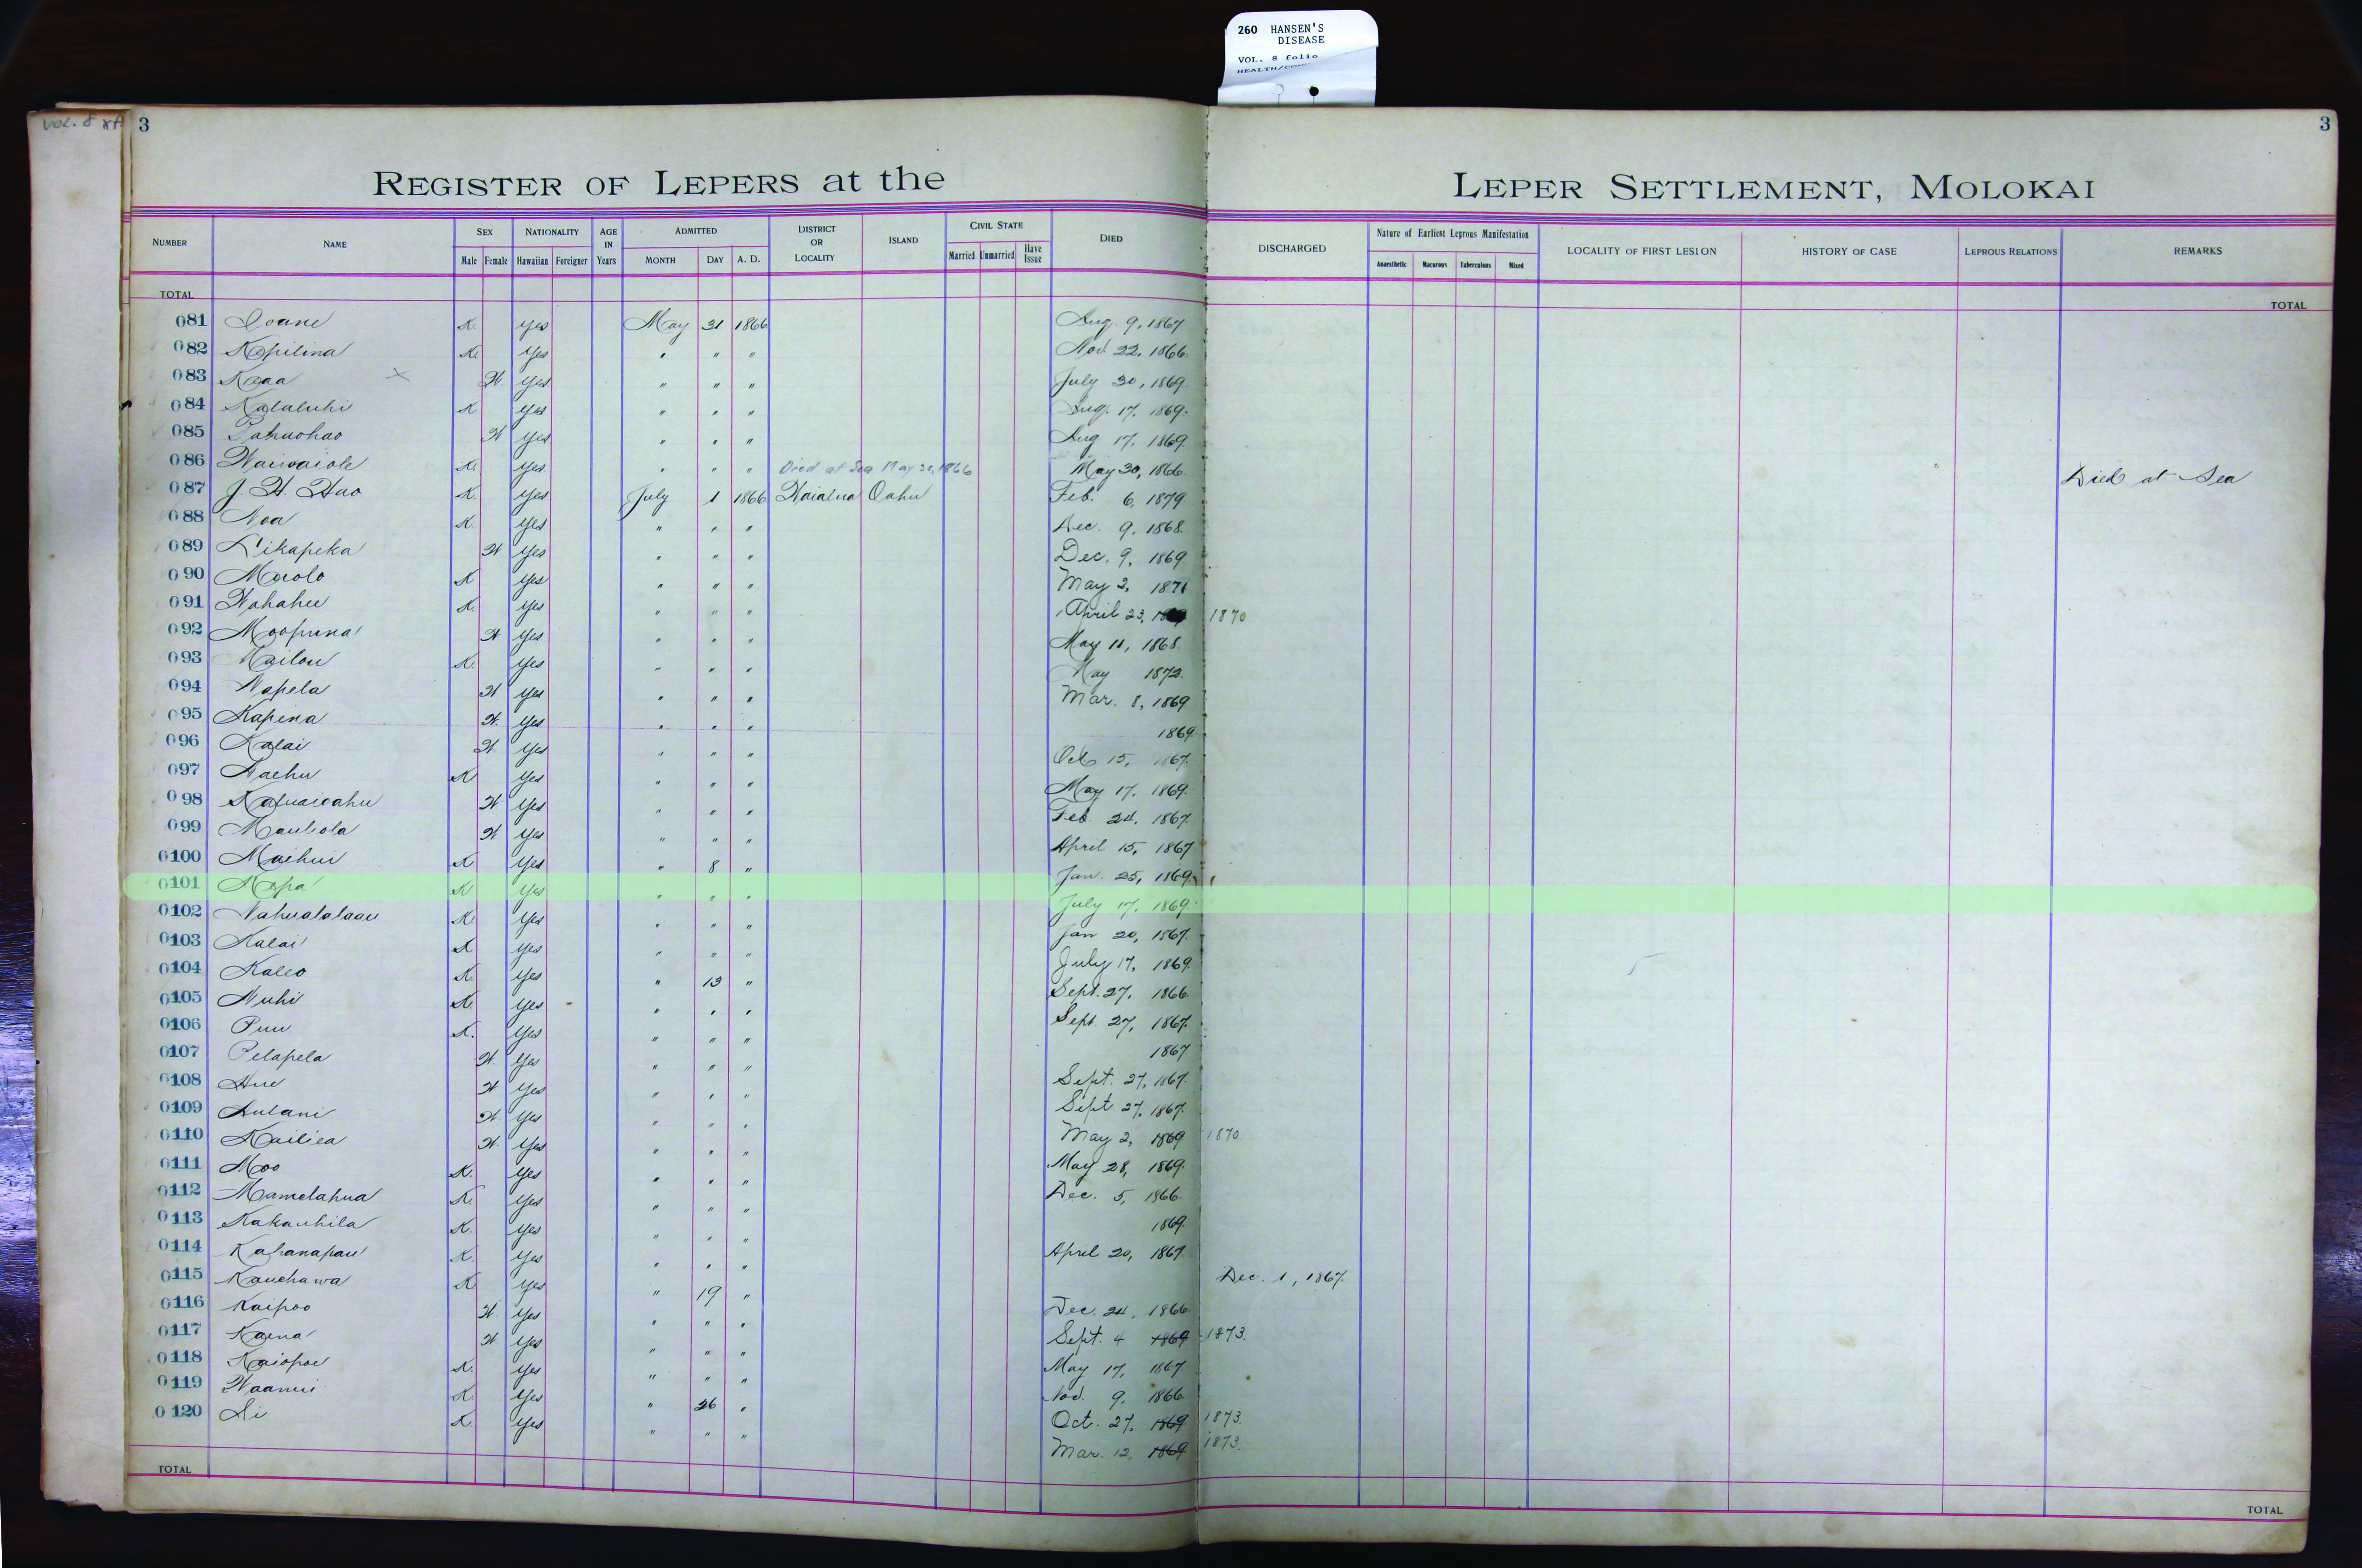 260 HANSEN'S
DISEASE
VOL. 8 folio
VOL. 8
3
3
REGISTER OF LEPERS at the LEPER SETTLEMENT, MOLOKAI
NUMBER NAME SEX Male Female NATIONALITY Hawaiian Foreigner AGE IN Years ADMITTED MONTH DAY A. D. DISTRICT OR LOCALITY ISLAND CIVIL STATE Married Unmarried Have Issue DIED DISCHARGED Nature of Earliest Leprous Manifestation Anaesthetic Macurous Tuberculous Mixed LOCALITY OF FIRST LESION HISTORY OF CASE LEPROUS RELATIONS REMARKS
TOTAL TOTAL
081 Ioane K. Yes May 31 1866 Aug. 9, 1867
082 Kapilina K. Yes " " " Nov. 22, 1866.
083 Kaaa x W. Yes " " " July 30, 1869.
084 Kalaluhi K Yes " " " Aug. 17, 1869.
085 Pahuohao W Yes " " " Aug 17, 1869.
086 Waiwaiole K. Yes " " " Died at Sea May 30, 1866 May 30, 1866. Died at Sea
087 J. H. Hao K. Yes July 1 1866 Waialua Oahu Feb. 6, 1879
088 Noa K. Yes " " " Dec. 9, 1868.
089 Likapeka W Yes " " " Dec. 9, 1869
090 Maolo K Yes " " " May 2, 1871
091 Wahahee K. Yes " " " April 23, 1870
092 Moopuna W Yes " " " May 11, 1868.
093 Kailou K. Yes " " " May 1872.
094 Napela W Yes " " " Mar. 8, 1869
095 Kapina W. Yes " " " 1869.
096 Kalai W Yes " " " Oct 15, 1867.
097 Naehu K Yes " " " May 17, 1869.
098 Kauaioahu W Yes " " " Feb. 24, 1867.
099 Mauliola W Yes " " " April 15, 1867
0100 Maihui K Yes " 8 " Jan. 25, 1869.
0101 Napa K Yes " " " July 17, 1869.
0102 Nahualalaau K. Yes " " " Jan 20, 1867.
0103 Kalai K Yes " " " July 17, 1869.
0104 Kaleo K. Yes " 13 " Sept. 27, 1866.
0105 Nuhi K. Yes " " " Sept. 27, 1867.
0106 Puu K. Yes " " " 1867
0107 Pelapela W Yes " " " Sept. 27, 1867.
0108 Hue W Yes " " " Sept 27, 1867.
0109 Aulani W Yes " " " May 2, 1869 1870.
0110 Kailiea W. Yes " " " May 28, 1869.
0111 Moo K. Yes " " " Dec. 5, 1866.
0112 Mamelahua K. Yes " " " 1869.
0113 Kakauhila K. Yes " " " April 20, 1867
0114 Kahanapau K. Yes " " " Dec. 1, 1867.
0115 Kauehawa K. Yes " 19 " Dec. 24, 1866.
0116 Kaipoo W. Yes " " " Sept. 4 1869 1873.
0117 Kaena W Yes " " " May 17, 1867
0118 Kaiopoe K. Yes " " " Nov. 9, 1866.
0119 Waanui K. Yes " 26 " Oct. 27, 1869 1873.
0120 Ai K. Yes " " " Mar. 12, 1869 1873.
TOTAL TOTAL